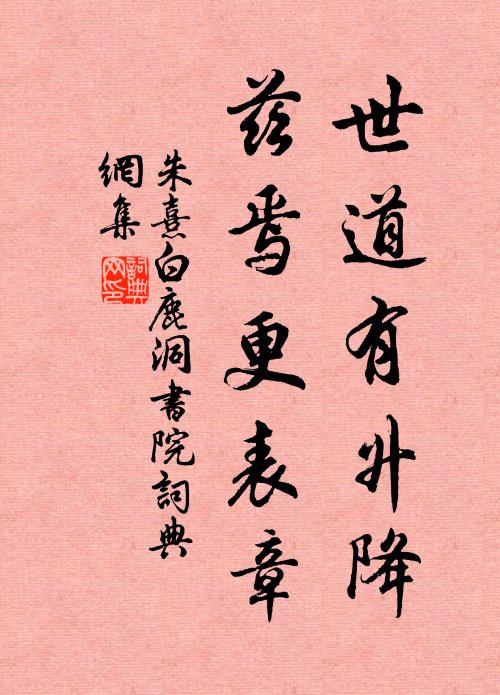 世道有升降
茲焉更表章
朱熹白鹿洞書院詞典
網集
詞典
网印